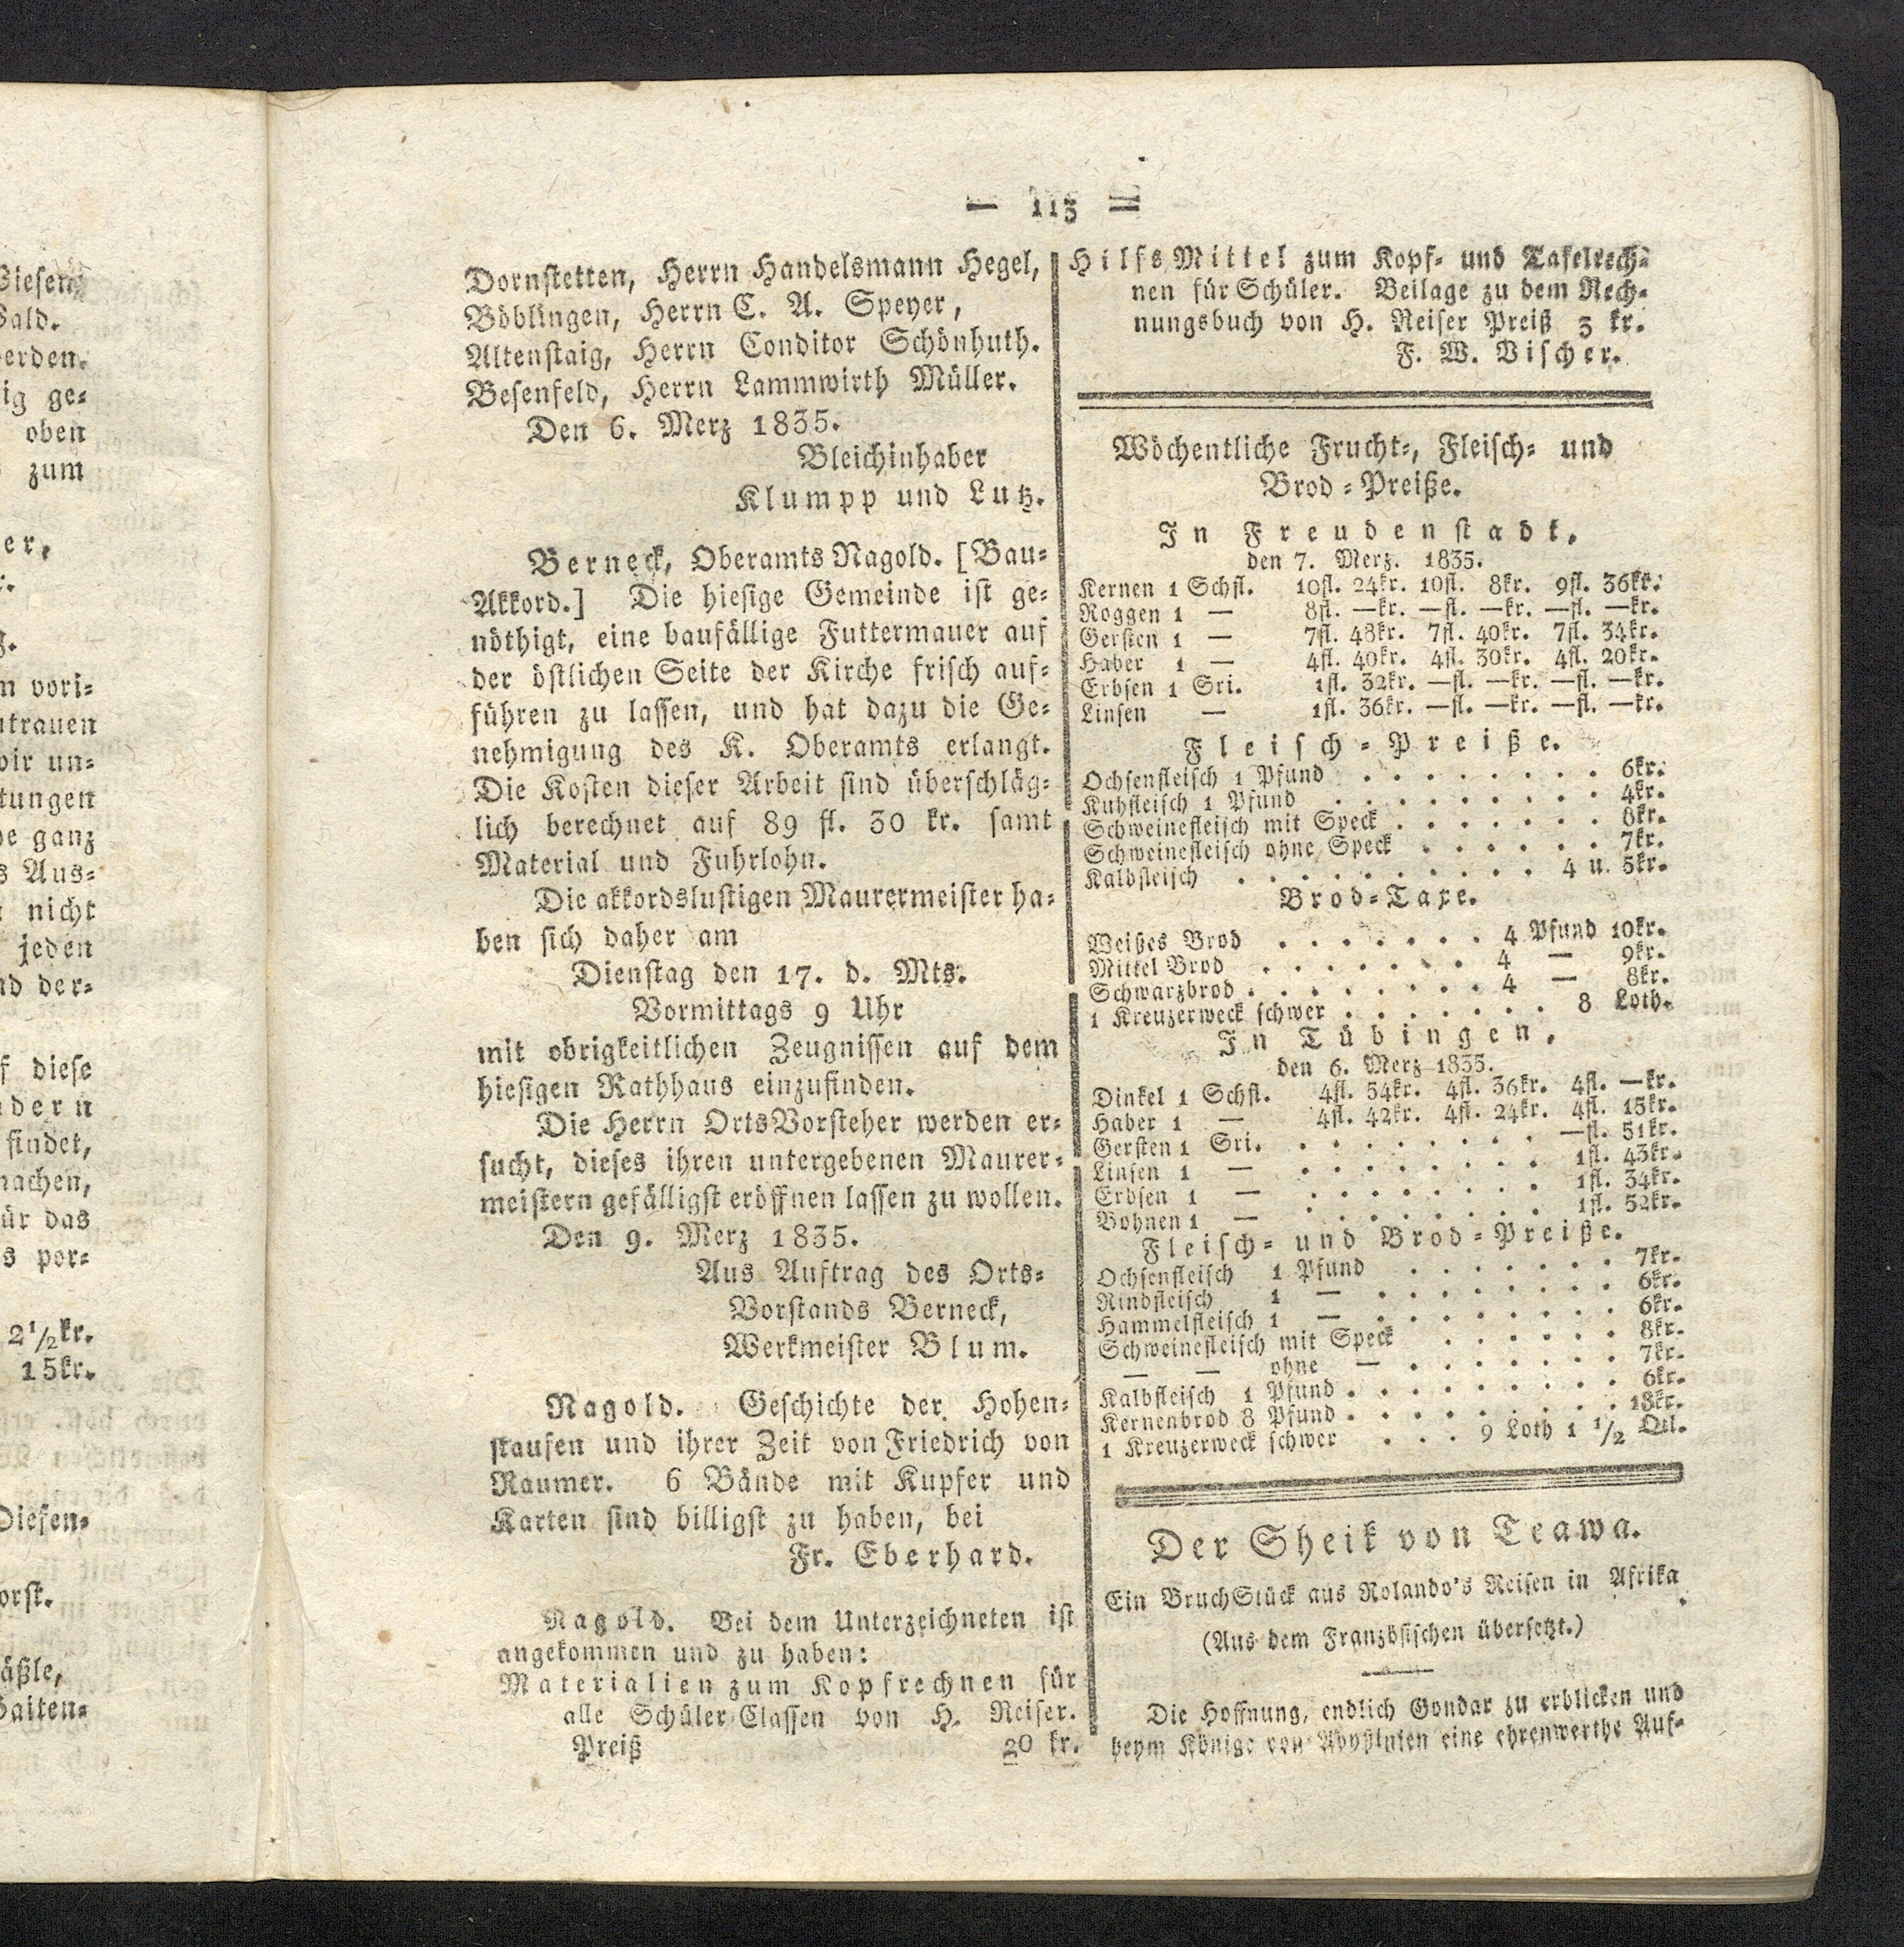 — 113 —
Dornstetten, Herrn Handelsmann Hegel,
Böblingen, Herrn C. A. Speyer,
Altenstaig, Herrn Conditor Schönhuth.
Besenfeld, Herrn Lammwirth Müller.
Den 6. Merz 1835.
Bleichinhaber
Klumpp und Lutz.
Berneck, Oberamts Nagold. [Bau-
Akkord.] Die hiesige Gemeinde ist ge-
nöthigt, eine baufällige Futtermauer auf
der östlichen Seite der Kirche frisch auf-
führen zu lassen, und hat dazu die Ge-
nehmigung des K. Oberamts erlangt.
Die Kosten dieser Arbeit sind überschläg-
lich berechnet auf 89 fl. 30 kr. samt
Material und Fuhrlohn.
Die akkordslustigen Maurermeister ha-
ben sich daher am
Dienstag den 17. d. Mts.
Vormittags 9 Uhr
mit obrigkeitlichen Zeugnissen auf dem
hiesigen Rathhaus einzufinden.
Die Herrn OrtsVorsteher werden er-
sucht, dieses ihren untergebenen Maurer-
meistern gefälligst eröffnen lassen zu wollen.
Den 9. Merz 1835.
Aus Auftrag des Orts-
Vorstands Berneck,
Werkmeister Blum.
Nagold. Geschichte der Hohen-
staufen und ihrer Zeit von Friedrich von
Raumer. 6 Bände mit Kupfer und
Karten sind billigst zu haben, bei
Fr. Eberhard.
Nagold. Bei dem Unterzeichneten ist
angekommen und zu haben:
Materialien zum Kopfrechnen für
alle Schüler-Classen von H. Reiser.
Preiß 20 kr.
HilfsMittel zum Kopf- und Tafelrech-
nen für Schüler. Beilage zu dem Rech-
nungsbuch von H. Reiser Preiß 3 kr.
F. W. Vischer.
Wöchentliche Frucht-, Fleisch- und
Brod-Preiße.
In Freudenstadt,
den 7. Merz. 1835.
Kernen 1 Schfl. 10fl. 24kr. 10fl. 8kr. 9fl. 36kr.
Roggen 1 — 8fl. —kr. —fl. —kr. —fl. —kr.
Gersten 1 — 7fl. 48kr. 7fl. 40kr. 7fl. 34kr.
Haber 1 — 4fl. 40kr. 4fl. 30kr. 4fl. 20kr.
Erbsen 1 Sri. 1fl. 32kr. —fl. —kr. —fl. —kr.
Linsen — 1fl. 36kr. —fl. —kr. —fl. —kr.
Fleisch-Preiße.
Ochsenfleisch 1 Pfund . . . . . . . . 6kr.
Kuhfleisch 1 Pfund . . . . . . . . . 4kr.
Schweinefleisch mit Speck . . . . . . . 8kr.
Schweinefleisch ohne Speck . . . . . . 7kr.
Kalbfleisch . . . . . . . . . . 4 u. 5kr.
Brod-Taxe.
Weißes Brod . . . . . . . 4 Pfund 10kr.
Mittel Brod . . . . . . . 4 — 9kr.
Schwarzbrod . . . . . . . . 4 — 8kr.
1 Kreuzerweck schwer . . . . . . . 8 Loth.
In Tübingen,
den 6. Merz 1835.
Dinkel 1 Schfl. 4fl. 54kr. 4fl. 36kr. 4fl. —kr.
Haber 1 — 4fl. 42kr. 4fl. 24kr. 4fl. 15kr.
Gersten 1 Sri. . . . . . . . . —fl. 51kr.
Linsen 1 — . . . . . . . . 1fl. 43kr.
Erbsen 1 — . . . . . . . . 1fl. 34kr.
Bohnen 1 — . . . . . . . . 1fl. 52kr.
Fleisch- und Brod-Preiße.
Ochsenfleisch 1 Pfund . . . . . . . 7kr.
Rindfleisch 1 — . . . . . . . . 6kr.
Hammelfleisch 1 — . . . . . . . . 6kr.
Schweinefleisch mit Speck . . . . . . 8kr.
— — ohne — . . . . . . . 7kr.
Kalbfleisch 1 Pfund . . . . . . . . 6kr.
Kernenbrod 8 Pfund . . . . . . . . 18kr.
1 Kreuzerweck schwer . . . 9 Loth 1 1/2 Qtl.
Der Sheik von Teawa.
Ein BruchStück aus Rolando's Reisen in Afrika.
(Aus dem Französischen übersetzt.)
Die Hoffnung, endlich Gondar zu erblicken und
beym Könige von Abyssinien eine ehrenwerthe Auf-
ald.
erden.
ig ge-
oben
zum
er,
vori-
trauen
wir un-
tungen
ganz
Aus-
nicht
jeden
der-
diese
dern
findet,
machen,
für das
por-
2 1/2kr.
15kr.
Diesen-
orst.
äßle,
aiten-